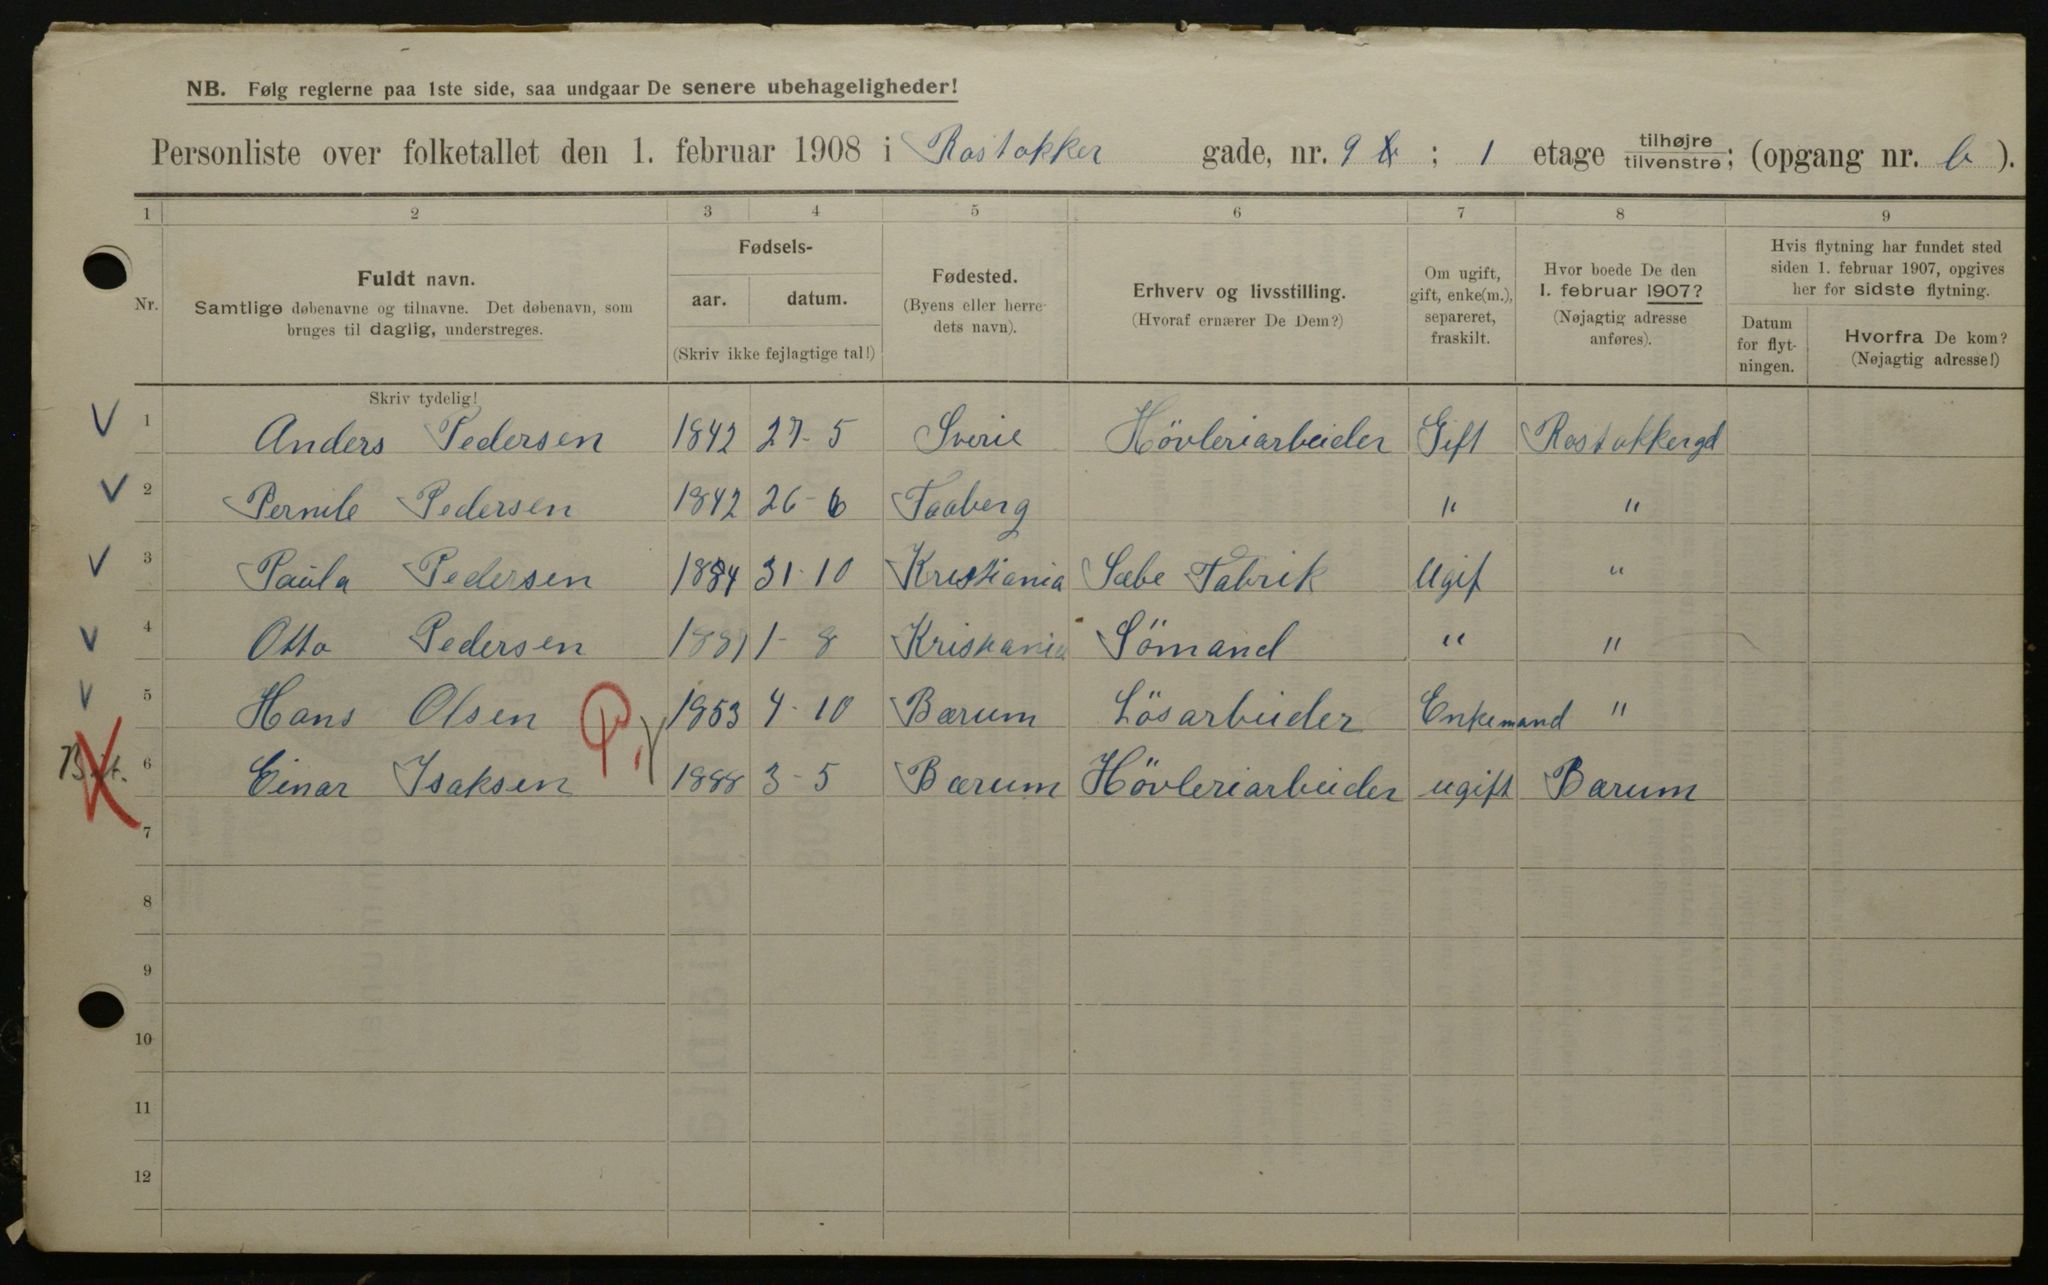 NB. Følg reglerne paa 1ste side, saa undgaar De senere ubehageligheder!
Personliste over folketallet den 1. februar 1908 i Rostokker gade, nr. 9 b ; 1 etage tilhøjre tilvenstre; (opgang nr. b ).
1 2 3 4 5 6 7 8 9
Nr.
Fuldt navn.
Samtlige døbenavne og tilnavne. Det døbenavn, som
bruges til daglig, understreges.
Fødsels-
aar. datum.
(Skriv ikke fejlagtige tal!)
Fødested.
(Byens eller herre-
dets navn).
Erhverv og livsstilling.
(Hvoraf ernærer De Dem?)
Om ugift,
gift, enke(m.),
separeret,
fraskilt.
Hvor boede De den
1. februar 1907?
(Nøjagtig adresse
anføres).
Hvis flytning har fundet sted
siden 1. februar 1907, opgives
her for sidste flytning.
Datum
for flyt-
ningen.
Hvorfra De kom?
(Nøjagtig adresse!)
Skriv tydelig!
1 Anders Pedersen 1842 27-5 Sverie Hövleriarbeider Gift Rostokkergd
2 Pernile Pedersen 1842 26-6 Faaberg " "
3 Paula Pedersen 1884 31-10 Kristiania Sæbe Fabrik Ugif "
4 Otto Pedersen 1881 1-8 Kristiania Sömand " "
5 Hans Olsen 1853 4-10 Bærum Lösarbeider Enkemand "
6 Einar Isaksen 1888 3-5 Bærum Hövleriarbeider ugift Bærum
7
8
9
10
11
12